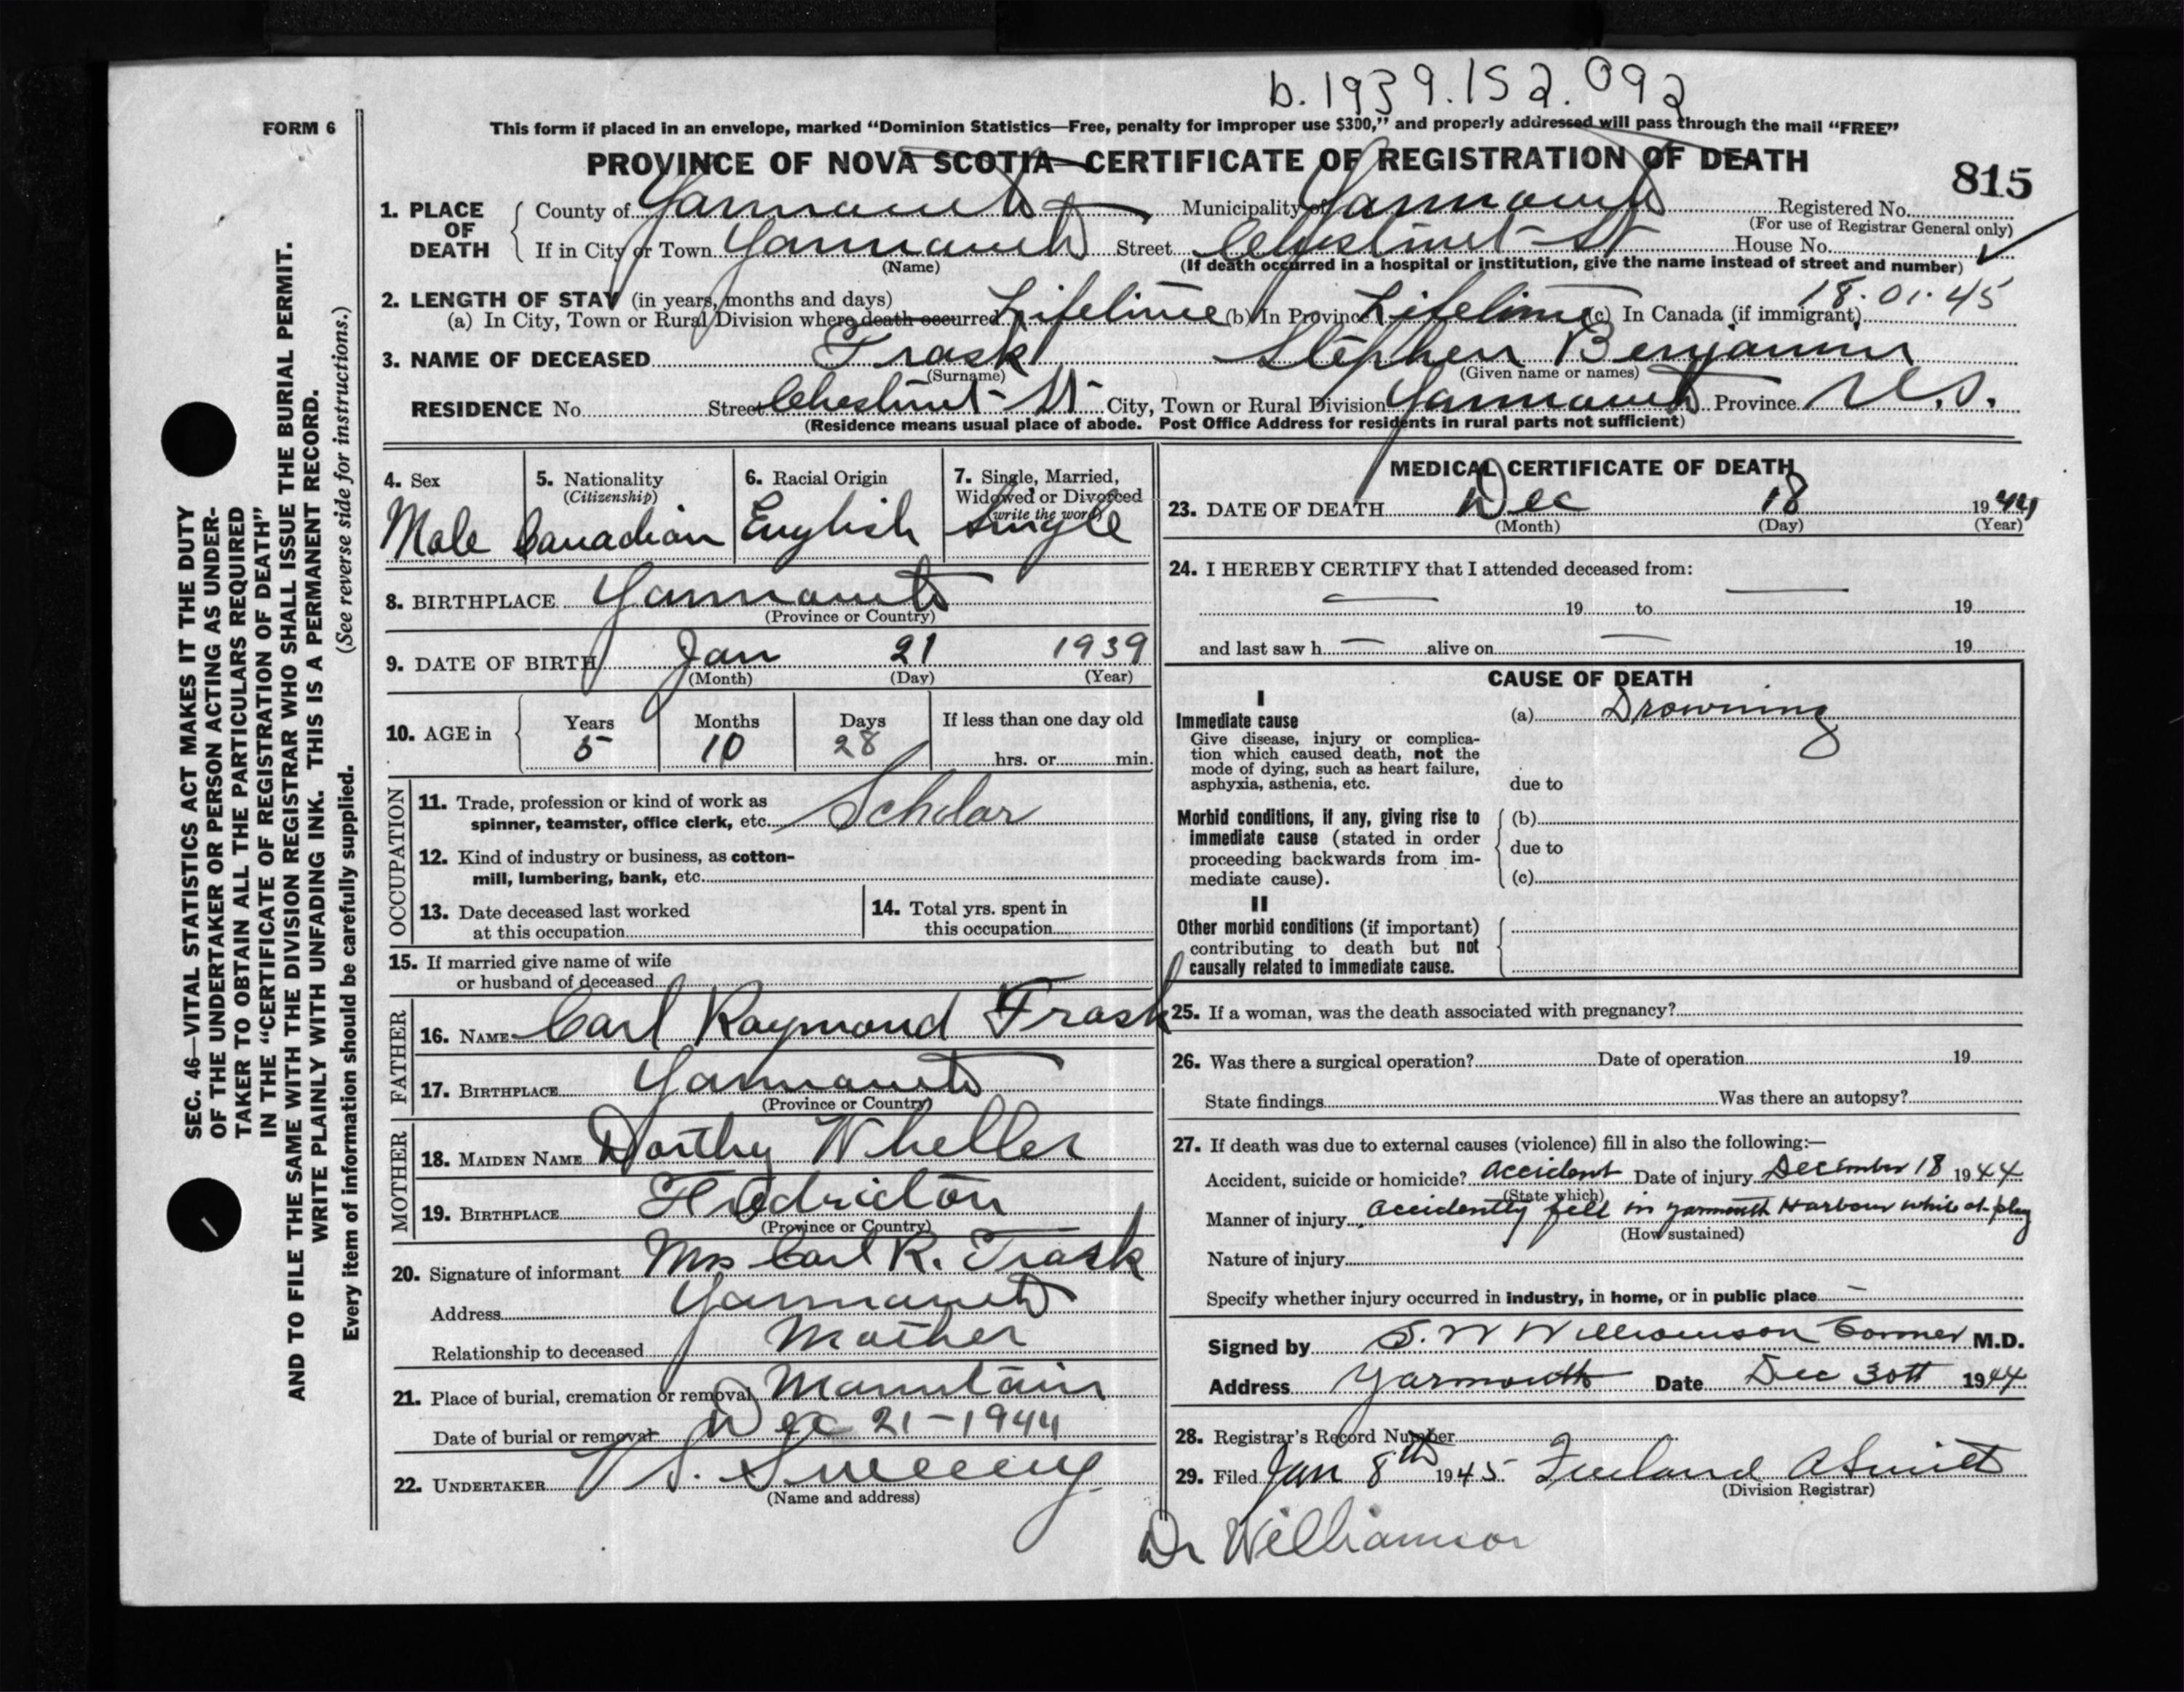 b. 1939.152.092
FORM 6
This form if placed in an envelope, marked “Dominion Statistics—Free, penalty for improper use $300,” and properly addressed will pass through the mail “FREE”
PROVINCE OF NOVA SCOTIA—CERTIFICATE OF REGISTRATION OF DEATH
815
1. PLACE OF DEATH
County of Yarmouth Municipality of Yarmouth Registered No.
(For use of Registrar General only)
If in City or Town Yarmouth Street Chestnut St House No.
(Name) (If death occurred in a hospital or institution, give the name instead of street and number)
18.01.45
2. LENGTH OF STAY (in years, months and days)
(a) In City, Town or Rural Division where death occurred Lifetime (b) In Province Lifetime (c) In Canada (if immigrant)
3. NAME OF DECEASED Trask Stephen Benjamin
(Surname) (Given name or names)
RESIDENCE No. Street Chestnut St City, Town or Rural Division Yarmouth Province N.S.
(Residence means usual place of abode. Post Office Address for residents in rural parts not sufficient)
4. Sex Male
5. Nationality (Citizenship) Canadian
6. Racial Origin English
7. Single, Married, Widowed or Divorced (write the word) Single
8. BIRTHPLACE Yarmouth
(Province or Country)
9. DATE OF BIRTH Jan 21 1939
(Month) (Day) (Year)
10. AGE in Years 5 Months 10 Days 28 If less than one day old
hrs. or min.
OCCUPATION
11. Trade, profession or kind of work as
spinner, teamster, office clerk, etc. Scholar
12. Kind of industry or business, as cotton-
mill, lumbering, bank, etc.
13. Date deceased last worked
at this occupation
14. Total yrs. spent in
this occupation
15. If married give name of wife
or husband of deceased
FATHER
16. NAME Carl Raymond Trask
17. BIRTHPLACE Yarmouth
(Province or Country)
MOTHER
18. MAIDEN NAME Dorthy Wheller
19. BIRTHPLACE Fredricton
(Province or Country)
20. Signature of informant Mrs Carl R. Trask
Address Yarmouth
Relationship to deceased Mother
21. Place of burial, cremation or removal Mountain
Date of burial or removal Dec 21-1944
22. UNDERTAKER V S. Sweeny
(Name and address)
MEDICAL CERTIFICATE OF DEATH
23. DATE OF DEATH Dec 18 1944
(Month) (Day) (Year)
24. I HEREBY CERTIFY that I attended deceased from:
— 19 to — 19
and last saw h — alive on — 19
CAUSE OF DEATH
I
Immediate cause (a) Drowning
Give disease, injury or complica-
tion which caused death, not the
mode of dying, such as heart failure,
asphyxia, asthenia, etc. due to
Morbid conditions, if any, giving rise to (b)
immediate cause (stated in order
proceeding backwards from im- due to
mediate cause). (c)
II
Other morbid conditions (if important)
contributing to death but not
causally related to immediate cause.
25. If a woman, was the death associated with pregnancy?
26. Was there a surgical operation? Date of operation 19
State findings Was there an autopsy?
27. If death was due to external causes (violence) fill in also the following:—
Accident, suicide or homicide? accident Date of injury December 18 1944
(State which)
Manner of injury accidently fell in yarmouth Harbour while at play
(How sustained)
Nature of injury
Specify whether injury occurred in industry, in home, or in public place —
Signed by S. W Williamson Coroner M.D.
Address Yarmouth Date Dec 30th 1944
28. Registrar's Record Number
29. Filed Jan 8th 1945
(Division Registrar)
Dr Williamson
SEC. 46—VITAL STATISTICS ACT MAKES IT THE DUTY
OF THE UNDERTAKER OR PERSON ACTING AS UNDER-
TAKER TO OBTAIN ALL THE PARTICULARS REQUIRED
IN THE “CERTIFICATE OF REGISTRATION OF DEATH”
AND TO FILE THE SAME WITH THE DIVISION REGISTRAR WHO SHALL ISSUE THE BURIAL PERMIT.
WRITE PLAINLY WITH UNFADING INK. THIS IS A PERMANENT RECORD.
Every item of information should be carefully supplied. (See reverse side for instructions.)